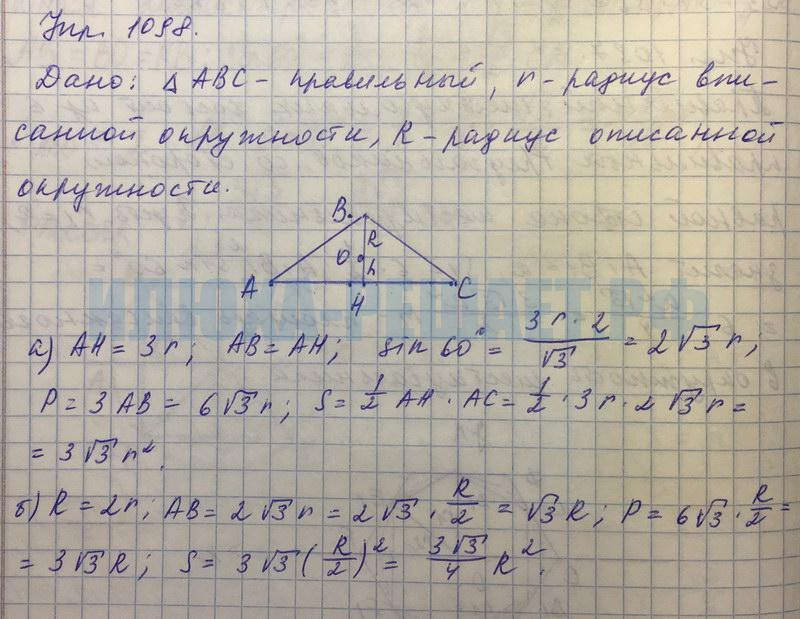 Упр. 1098.
Дано: △ ABC - правильный, r - радиус впи-
санной окружности, R - радиус описанной
окружности.
B
R
O
r
A
H
C
ИЛЮХА-РЕШАЕТ.РФ
а) AH = 3r; AB = AH; sin 60° = (3r · 2)/√3 = 2√3 r;
P = 3 AB = 6√3 r; S = 1/2 AH · AC = 1/2 · 3r · 2√3 r =
= 3√3 r².
б) R = 2r; AB = 2√3 r = 2√3 · R/2 = √3 R; P = 6√3 · R/2 =
= 3√3 R; S = 3√3 (R/2)² = (3√3)/4 R².